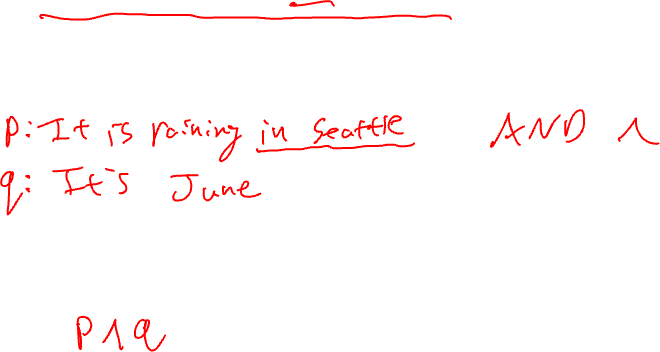 p: It is raining in Seattle AND ∧
q: It's June
p ∧ q